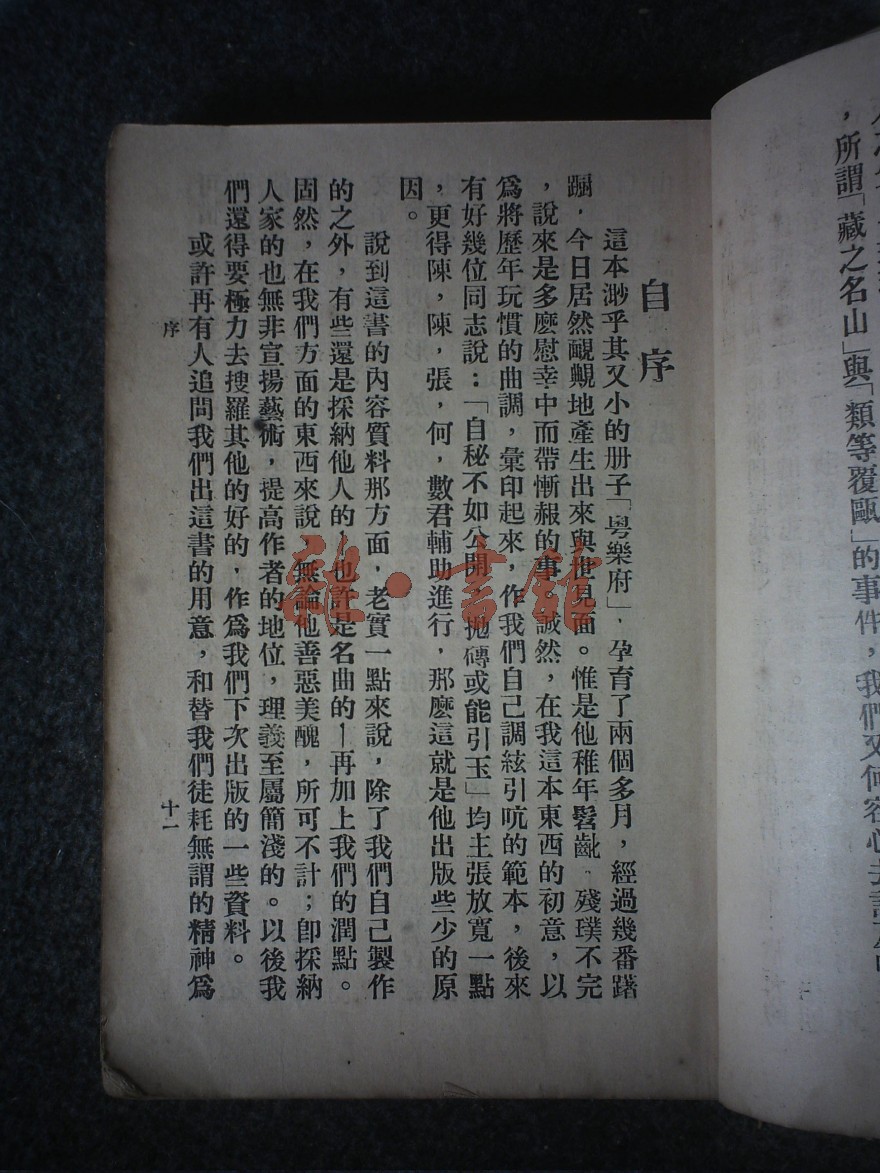 ，所謂「藏之名山」與「類等覆瓿」的事件，我們又何容心去計
自序
這本渺乎其又小的册子「粤樂府」，孕育了兩個多月，經過幾番躇
蹰，今日居然靦覥地產生出來與世見面。惟是他稚年髫齔，殘璞不完
，說來是多麽慰幸中而帶慚赧的事，誠然，在我這本東西的初意，以
爲將歷年玩慣的曲調，彙印起來，作我們自己調絃引吭的範本，後來
有好幾位同志說：「自秘不如公開，拋磚或能引玉」均主張放寬一點
，更得陳，陳，張，何，數君輔助進行，那麽這就是他出版些少的原
因。
說到這書的內容質料那方面，老實一點來說，除了我們自己製作
的之外，有些還是採納他人的，也許是名曲的—再加上我們的潤點。
固然，在我們方面的東西來說，無論他善惡美醜，所可不計；卽採納
人家的也無非宣揚藝術，提高作者的地位，理義至屬簡淺的。以後我
們還得要極力去搜羅其他的好的，作爲我們下次出版的一些資料。
或許再有人追問我們出這書的用意，和替我們徒耗無謂的精神爲
序
十一
雜·書館